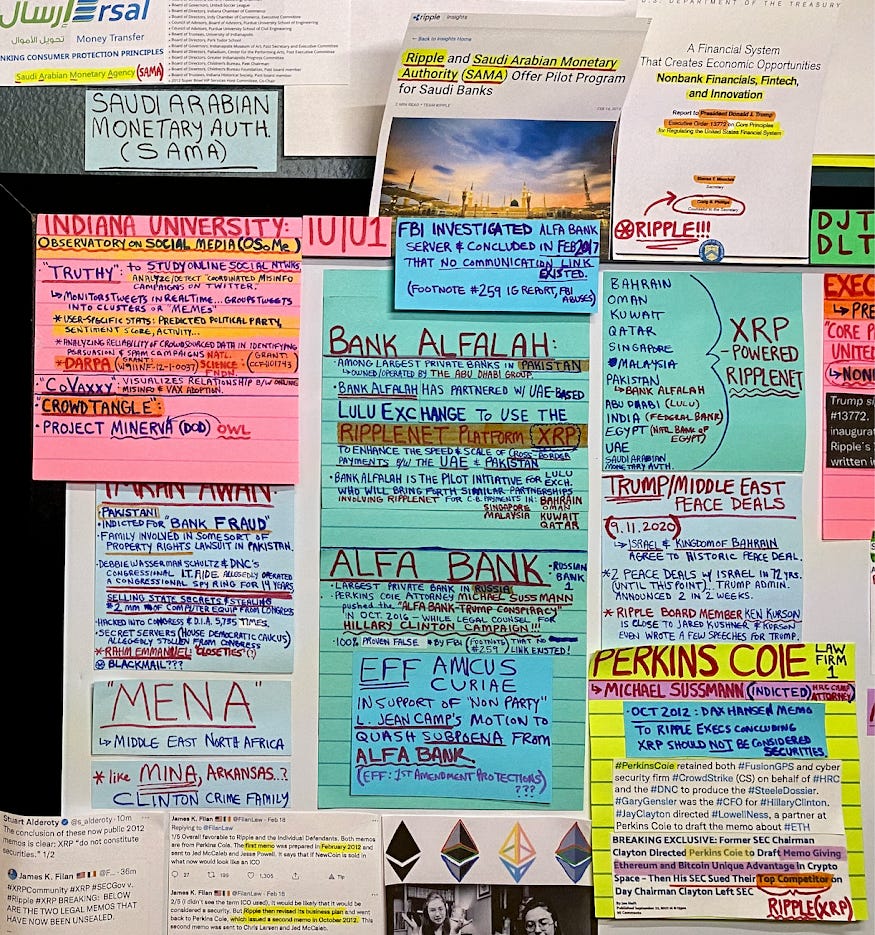 إرسال Ersal
تحويل الأموال Money Transfer
NKING CONSUMER PROTECTION PRINCIPLES
Saudi Arabian Monetary Agency (SAMA)
• Board of Governors, United Soccer League
• Board of Directors, Indiana Chamber of Commerce
SAUDI ARABIAN
MONETARY AUTH.
(SAMA)
ripple Insights
← Back to Insights Home
Ripple and Saudi Arabian Monetary
Authority (SAMA) Offer Pilot Program
for Saudi Banks
U.S. DEPARTMENT OF THE TREASURY
A Financial System
That Creates Economic Opportunities
Nonbank Financials, Fintech,
and Innovation
Report to President Donald J. Trump
Executive Order 13772 on Core Principles
for Regulating the United States Financial System
Steven T. Mnuchin
Secretary
Craig S. Phillips
Counselor to the Secretary
RIPPLE!!!
INDIANA UNIVERSITY:
OBSERVATORY ON SOCIAL MEDIA (OSoMe)
• "TRUTHY": to STUDY ONLINE SOCIAL NTWKS
ANALYZE/DETECT "COORDINATED MISINFO
CAMPAIGNS ON TWITTER.
↳ MONITORS TWEETS IN REALTIME... GROUPS TWEETS
INTO CLUSTERS OR "MEMES"
* USER-SPECIFIC STATS: PREDICTED POLITICAL PARTY,
SENTIMENT SCORE, ACTIVITY...
* ANALYZING RELIABILITY OF CROWDSOURCED DATA IN IDENTIFYING
PERSUASION & SPAM CAMPAIGNS NATL.
* DARPA (GRANT: W911NF-12-1-0037) SCIENCE FNDN. (GRANT: CCF-101743
• "COVAXXY": VISUALIZES RELATIONSHIP B/W ONLINE
MISINFO & VAX ADOPTION.
• "CROWDTANGLE":
• PROJECT MINERVA (DOD) OWL
IU|U1
FBI INVESTIGATED ALFA BANK
SERVER & CONCLUDED IN FEB 2017
THAT NO COMMUNICATION LINK
EXISTED.
(FOOTNOTE #259 IG REPORT, FBI
ABUSES)
BANK ALFALAH:
• AMONG LARGEST PRIVATE BANKS IN PAKISTAN
↳ OWNED/OPERATED BY THE ABU DHABI GROUP.
• BANK ALFALAH HAS PARTNERED W/ UAE-BASED
LULU EXCHANGE TO USE THE
RIPPLENET PLATFORM (XRP)
TO ENHANCE THE SPEED & SCALE OF CROSS-BORDER
PAYMENTS B/W THE UAE & PAKISTAN
• BANK ALFALAH IS THE PILOT INITIATIVE FOR LULU EXCH.
WHO WILL BRING FORTH SIMILAR PARTNERSHIPS
INVOLVING RIPPLENET FOR C.B. PAYMENTS IN: BAHRAIN
SINGAPORE OMAN
MALAYSIA KUWAIT
QATAR
BAHRAIN
OMAN
KUWAIT
QATAR
SINGAPORE
MALAYSIA
PAKISTAN
↳ BANK ALFALAH
ABU DHABI (LULU)
INDIA (FEDERAL BANK)
EGYPT (NATL BANK OF
EGYPT)
UAE
SAUDI ARABIAN
MONETARY AUTH.
XRP
-POWERED
RIPPLENET
DJT
DLT
EXEC
↳ PRE
"CORE P
UNITED
↳ NON
Trump si
#13772.
inaugurat
Ripple's
written i
IMRAN AWAN
• PAKISTANI
• INDICTED FOR "BANK FRAUD"
• FAMILY INVOLVED IN SOME SORT OF
PROPERTY RIGHTS LAWSUIT IN PAKISTAN.
• DEBBIE WASSERMAN SCHULTZ & DNC'S
CONGRESSIONAL I.T. AIDE ALLEGEDLY OPERATED
A CONGRESSIONAL SPY RING FOR 14 YEARS
SELLING STATE SECRETS & STEALING
$2 MM OF COMPUTER EQUIP FROM CONGRESS
• HACKED INTO CONGRESS & D.I.A. 5,735 TIMES.
• SECRET SERVERS (HOUSE DEMOCRATIC CAUCUS)
ALLEGEDLY STOLEN FROM CONGRESS
* RAHM EMMANUEL: CLOSE TIES (?)
BLACKMAIL???
ALFA BANK • RUSSIAN
BANK
1
• LARGEST PRIVATE BANK IN RUSSIA
• PERKINS COIE ATTORNEY MICHAEL SUSSMANN
pushed the "ALFA BANK-TRUMP CONSPIRACY"
IN OCT 2016 - WHILE LEGAL COUNSEL FOR
HILLARY CLINTON CAMPAIGN!!!
• 100% PROVEN FALSE * BY FBI (FOOTNOTE #259) THAT NO
LINK EXISTED!
TRUMP/MIDDLE EAST
PEACE DEALS
(9.11.2020)
↳ ISRAEL & KINGDOM OF BAHRAIN
AGREE TO HISTORIC PEACE DEAL.
* 2 PEACE DEALS W/ ISRAEL IN 72 YRS.
(UNTIL THIS POINT), TRUMP ADMIN.
ANNOUNCED 2 IN 2 WEEKS.
* RIPPLE BOARD MEMBER KEN KURSON
IS CLOSE TO JARED KUSHNER & KURSON
EVEN WROTE A FEW SPEECHES FOR TRUMP.
"MENA"
↳ MIDDLE EAST NORTH AFRICA
* like MINA, ARKANSAS..?
CLINTON CRIME FAMILY
EFF AMICUS
CURIAE
IN SUPPORT OF "NON PARTY"
L. JEAN CAMP'S MOTION TO
QUASH SUBPOENA FROM
ALFA BANK
(EFF: 1ST AMENDMENT PROTECTIONS)
???
PERKINS COIE LAW
FIRM
1
↳ MICHAEL SUSSMANN (INDICTED) HRC CAMP
ATTORNEY
• OCT 2012: DAX HANSEN MEMO
TO RIPPLE EXECS CONCLUDING
XRP SHOULD NOT BE CONSIDERED
SECURITIES.
#PerkinsCoie retained both #FusionGPS and cyber
security firm #CrowdStrike (CS) on behalf of #HRC
and the #DNC to produce the #SteeleDossier.
#GaryGensler was the #CFO for #HillaryClinton.
#JayClayton directed #LowellNess, a partner at
Perkins Coie to draft the memo about #ETH
BREAKING EXCLUSIVE: Former SEC Chairman
Clayton Directed Perkins Coie to Draft Memo Giving
Ethereum and Bitcoin Unique Advantage in Crypto
Space - Then His SEC Sued Their Top Competitor on
Day Chairman Clayton Left SEC
RIPPLE (XRP)
Stuart Alderoty @s_alderoty · 10m
The conclusion of these now public 2012
memos is clear: XRP "do not constitute
securities." 1/2
James K. Filan @F... · 36m
#XRPCommunity #XRP #SECGov v.
#Ripple #XRP BREAKING: BELOW
ARE THE TWO LEGAL MEMOS THAT
HAVE NOW BEEN UNSEALED.
James K. Filan @FilanLaw · Feb 18
Replying to @FilanLaw
1/5 Overall favorable to Ripple and the Individual Defendants. Both memos
are from Perkins Coie. The first memo was prepared in February 2012 and
sent to Jed McCaleb and Jesse Powell. It says if NewCoin is sold in
what now would look like an ICO
27 199 1,305 Tip
James K. Filan @FilanLaw · Feb 18
2/5 (I didn't see the term ICO used), it would be likely that it would be
considered a security. But Ripple then revised its business plan and went
back to Perkins Coie, which issued a second memo in October 2012. This
second memo was sent to Chris Larsen and Jed McCaleb.